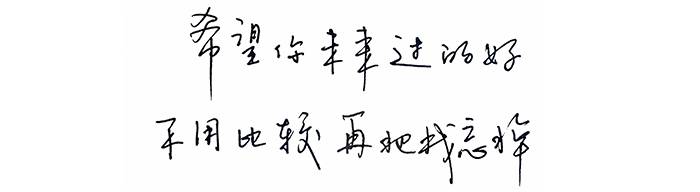 希望你未来过的好
不用比较再把我忘掉